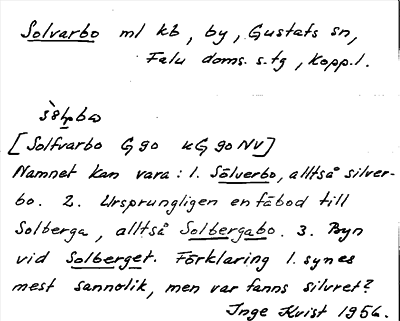 Solvarbo ml kb, by, Gustafs sn,
Falu doms. s. tg, Kopp. l.
[Solfvarbo G 90 kG 90 NV]
Namnet kan vara: 1. Sölverbo, alltså silver-
bo. 2. Ursprungligen en fäbod till
Solberga, alltså Solbergabo. 3. Byn
vid Solberget. Förklaring 1. synes
mest sannolik, men var fanns silvret?
Inge Kvist 1956.